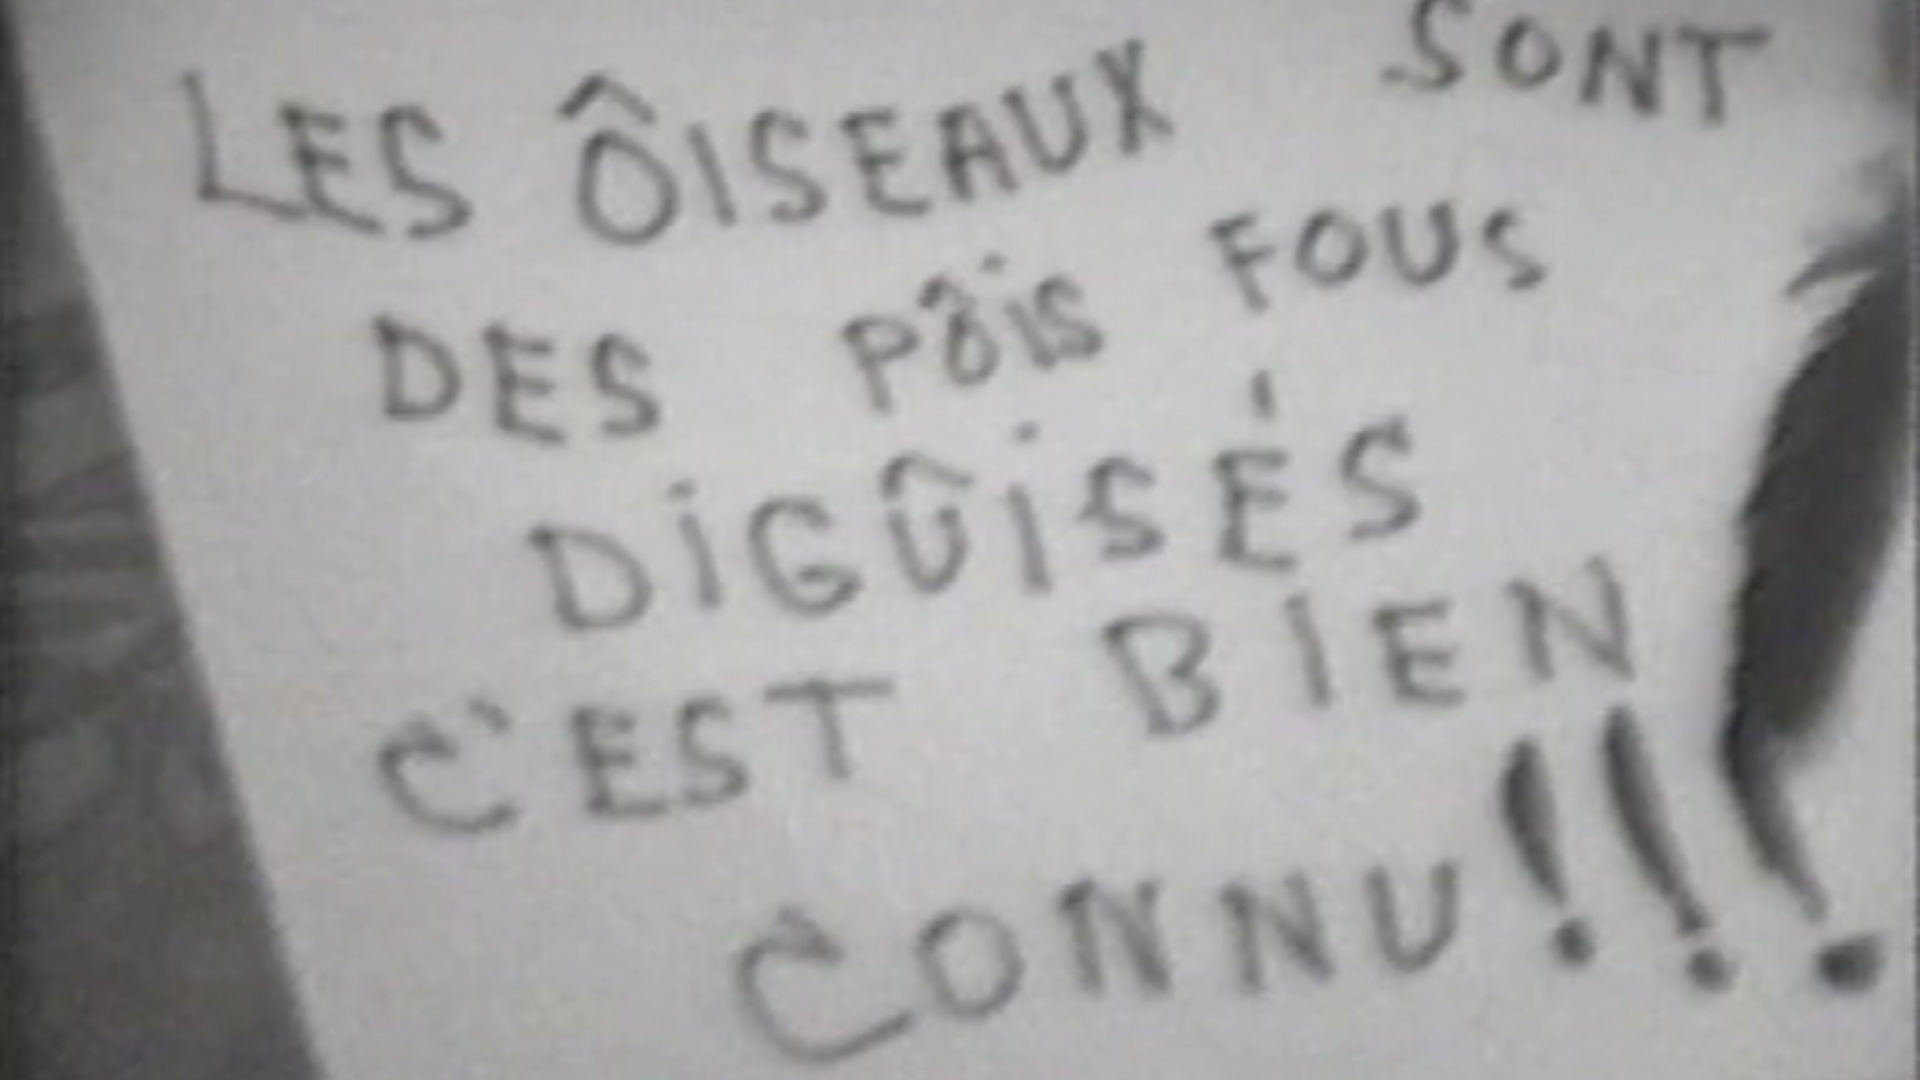 LES ÔISEAUX SONT
DES PÔIS FOUS
DIGÛISÉS
C'EST BIEN
CONNU!!!